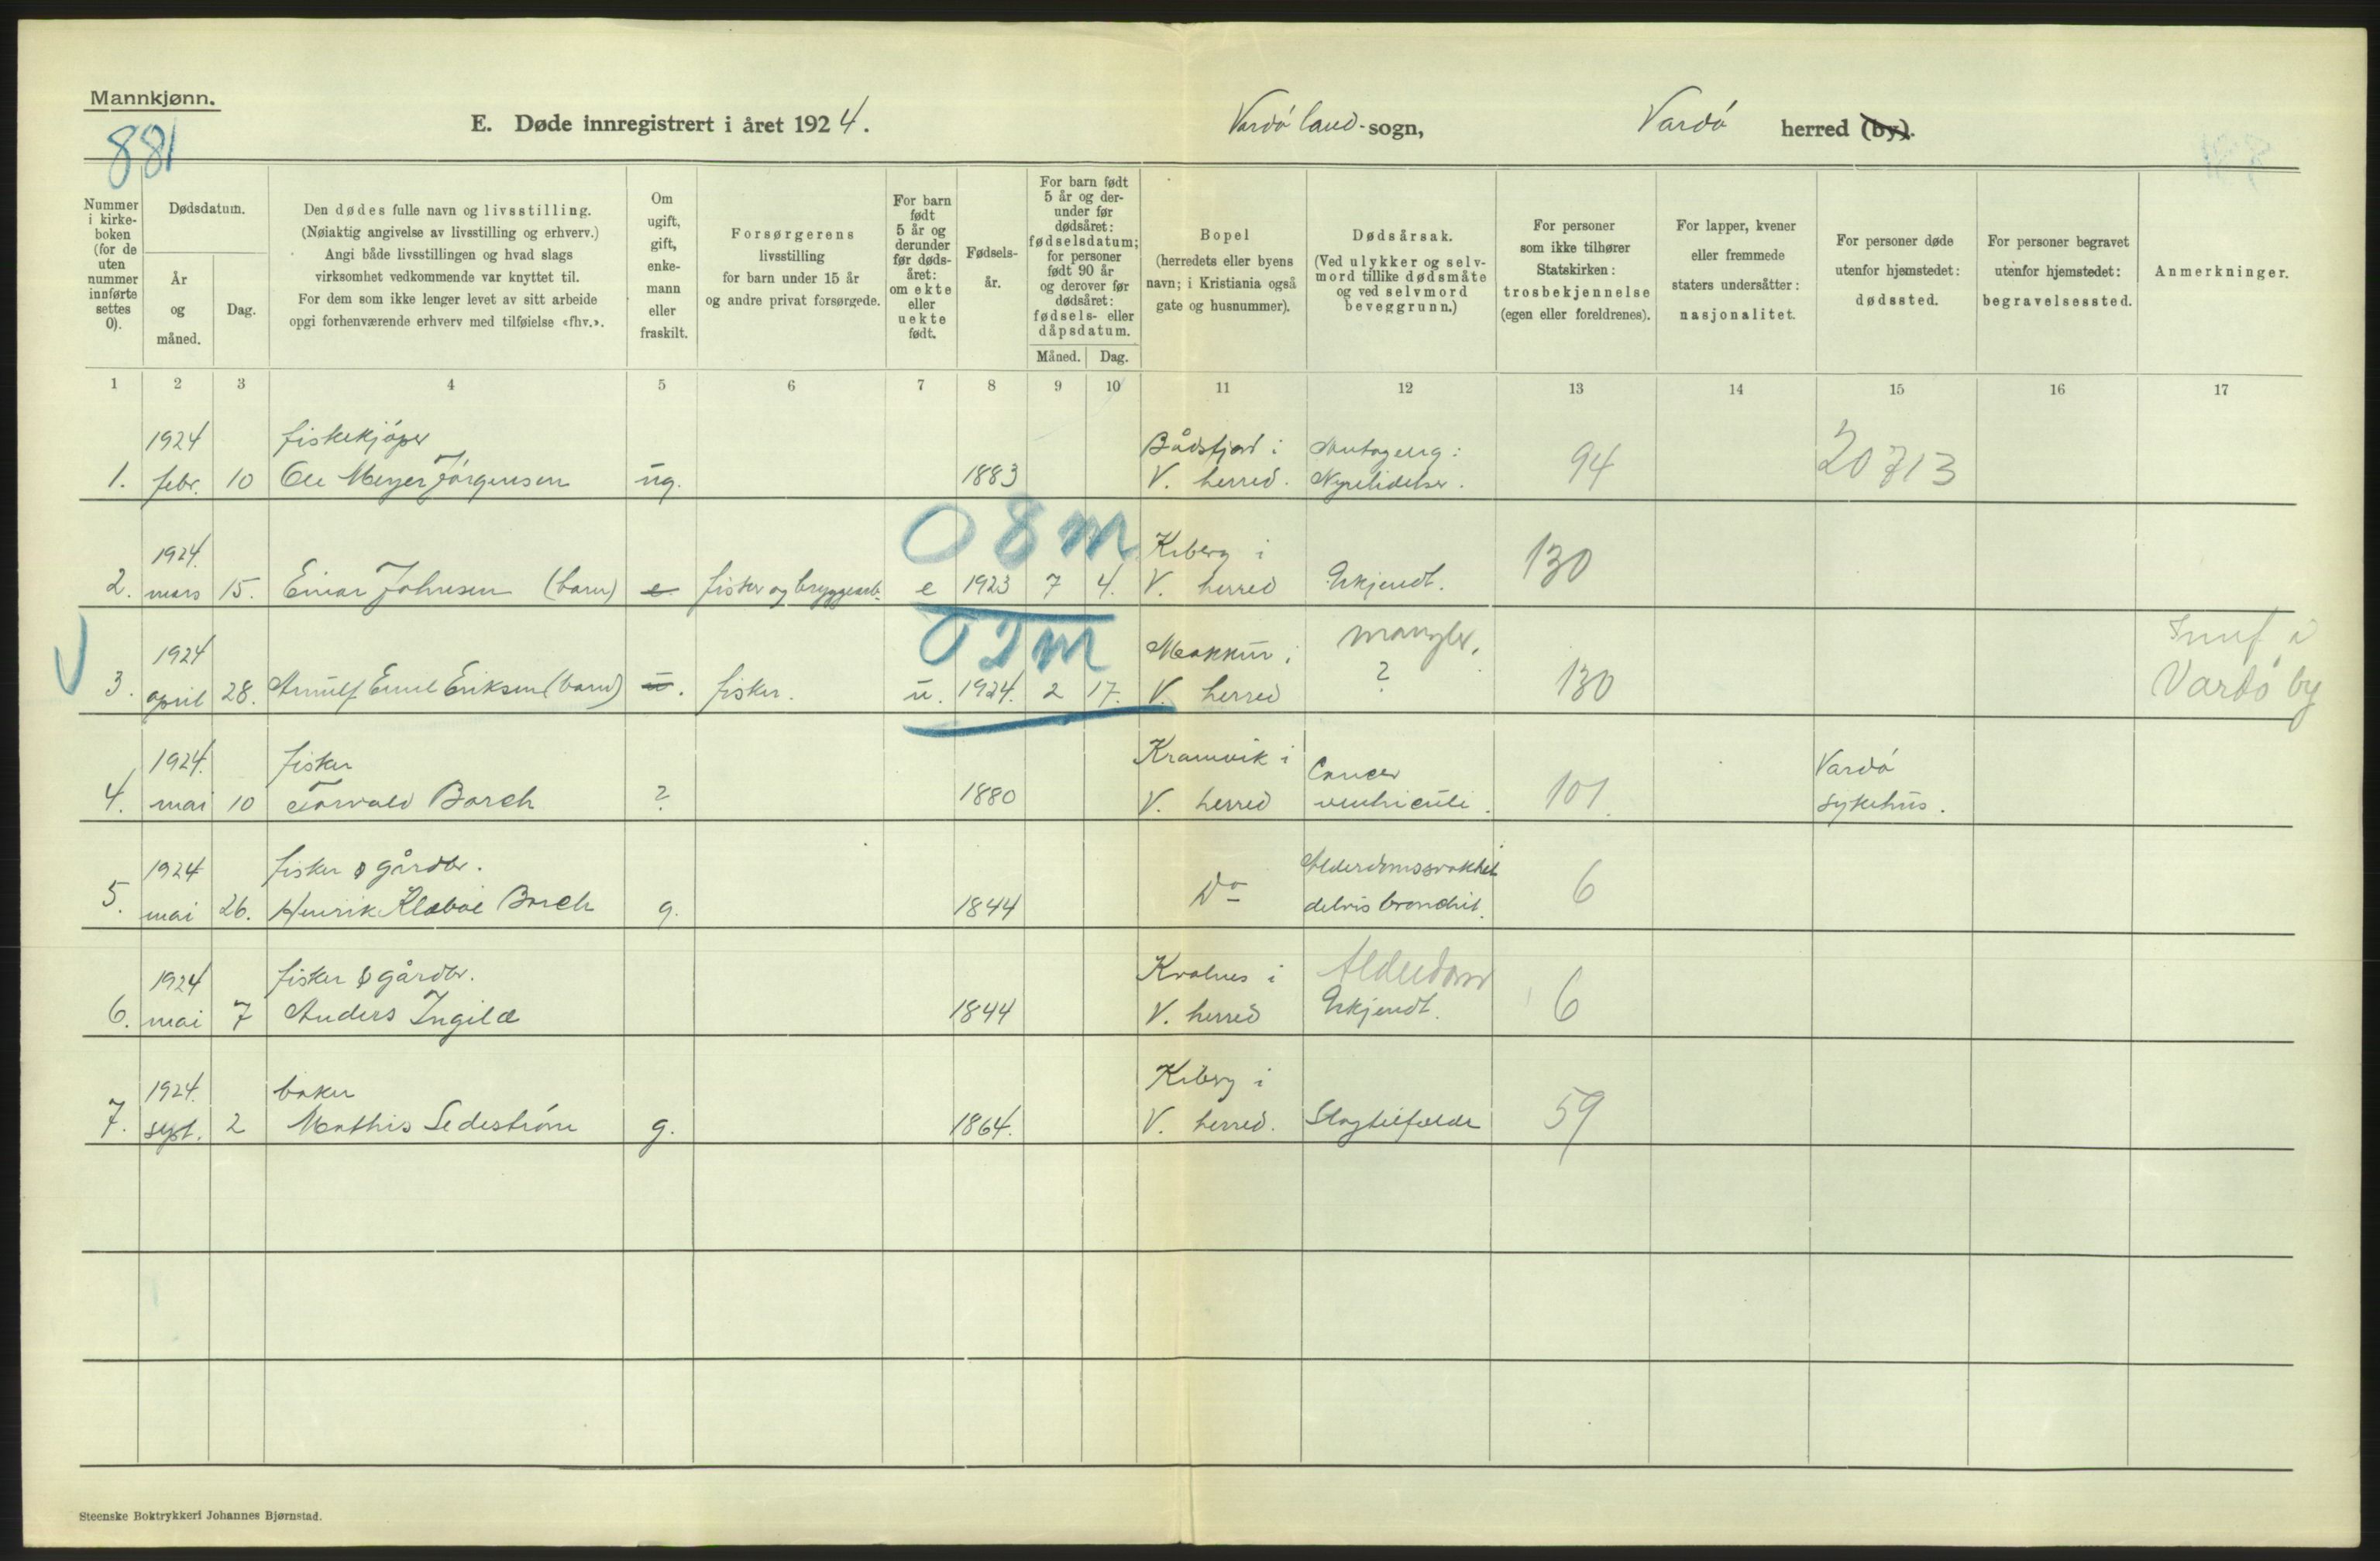 Mannkjønn.
881
E. Døde innregistrert i året 1924.
Vardø land-sogn,
Vardø herred (by).
Nummer i kirke-boken (for de uten nummer innførte settes 0).
Dødsdatum.
År og måned.
Dag.
Den dødes fulle navn og livsstilling.
(Nøiaktig angivelse av livsstilling og erhverv.)
Angi både livsstillingen og hvad slags
virksomhet vedkommende var knyttet til.
For dem som ikke lenger levet av sitt arbeide
opgi forhenværende erhverv med tilføielse «fhv.».
Om ugift, gift, enke-mann eller fraskilt.
Forsørgerens
livsstilling
for barn under 15 år
og andre privat forsørgede.
For barn født 5 år og derunder før døds-året: om ekte eller uekte født.
Fødsels-år.
For barn født 5 år og der-under før dødsåret: fødselsdatum; for personer født 90 år og derover før dødsåret: fødsels- eller dåpsdatum.
Måned.
Dag.
Bopel
(herredets eller byens
navn; i Kristiania også
gate og husnummer).
Dødsårsak.
(Ved ulykker og selv-
mord tillike dødsmåte
og ved selvmord
beveggrunn.)
For personer
som ikke tilhører
Statskirken:
trosbekjennelse
(egen eller foreldrenes).
For lapper, kvener
eller fremmede
staters undersåtter:
nasjonalitet.
For personer døde
utenfor hjemstedet:
dødssted.
For personer begravet
utenfor hjemstedet:
begravelsessted.
Anmerkninger.
1 2 3 4 5 6 7 8 9 10 11 12 13 14 15 16 17
1924 fiskekjøper Bådsfjord i Antagelig:
1. febr. 10 Ole Meyer Jørgensen ug. 1883 V. herred. Nyrelidelse. 94 20713
08m
1924. Kiberg i
2. mars 15. Einar Johnsen (barn) e fisker og bryggearb. e 1923 7 4. V. herred Ukjendt. 130
02m
1924 Makkur i mangler.
3. april 28. Arnulf Emil Eriksen (barn) u. fisker. u. 1924. 2 17. V. herred ? 130 i
Vardø by
1924. fisker Kramvik i Cancer Vardø
4. mai 10 Torvald Borch ? 1880 V. herred ventriculi. 101 sykehus.
1924 fisker & gårdbr. Alderdomssvakhet
5. mai 26. Henrik Klæboe Borch g. 1844 Do delvis bronchit. 6
1924 fisker & gårdbr. Kvalnes i Alderdom
6. mai 7 Anders Ingilæ 1844 V. herred Ukjendt. 6
1924. baker Kiberg i
7. sept. 2 Mathis Sedestrøm g. 1864. V. herred. Slagtilfælde 59
Steenske Boktrykkeri Johannes Bjørnstad.